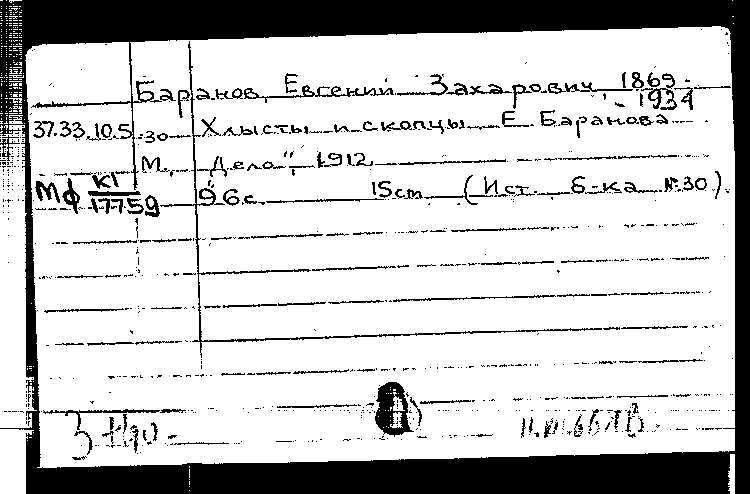 Баранов, Евгений Захарович, 1869-
- 1934
37.33.10.5.30 Хлысты и скопцы Е. Баранова
М., "Дело", 1912
Мф К1/17759 96 с. 15 cm (Ист. б-ка №30).